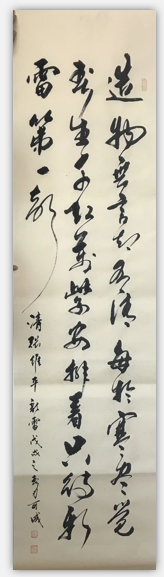 造物無言却有情每於寒盡覺
春生千紅萬紫安排著只待新
雷第一聲
清張維屏新雷戊戌之春月可成